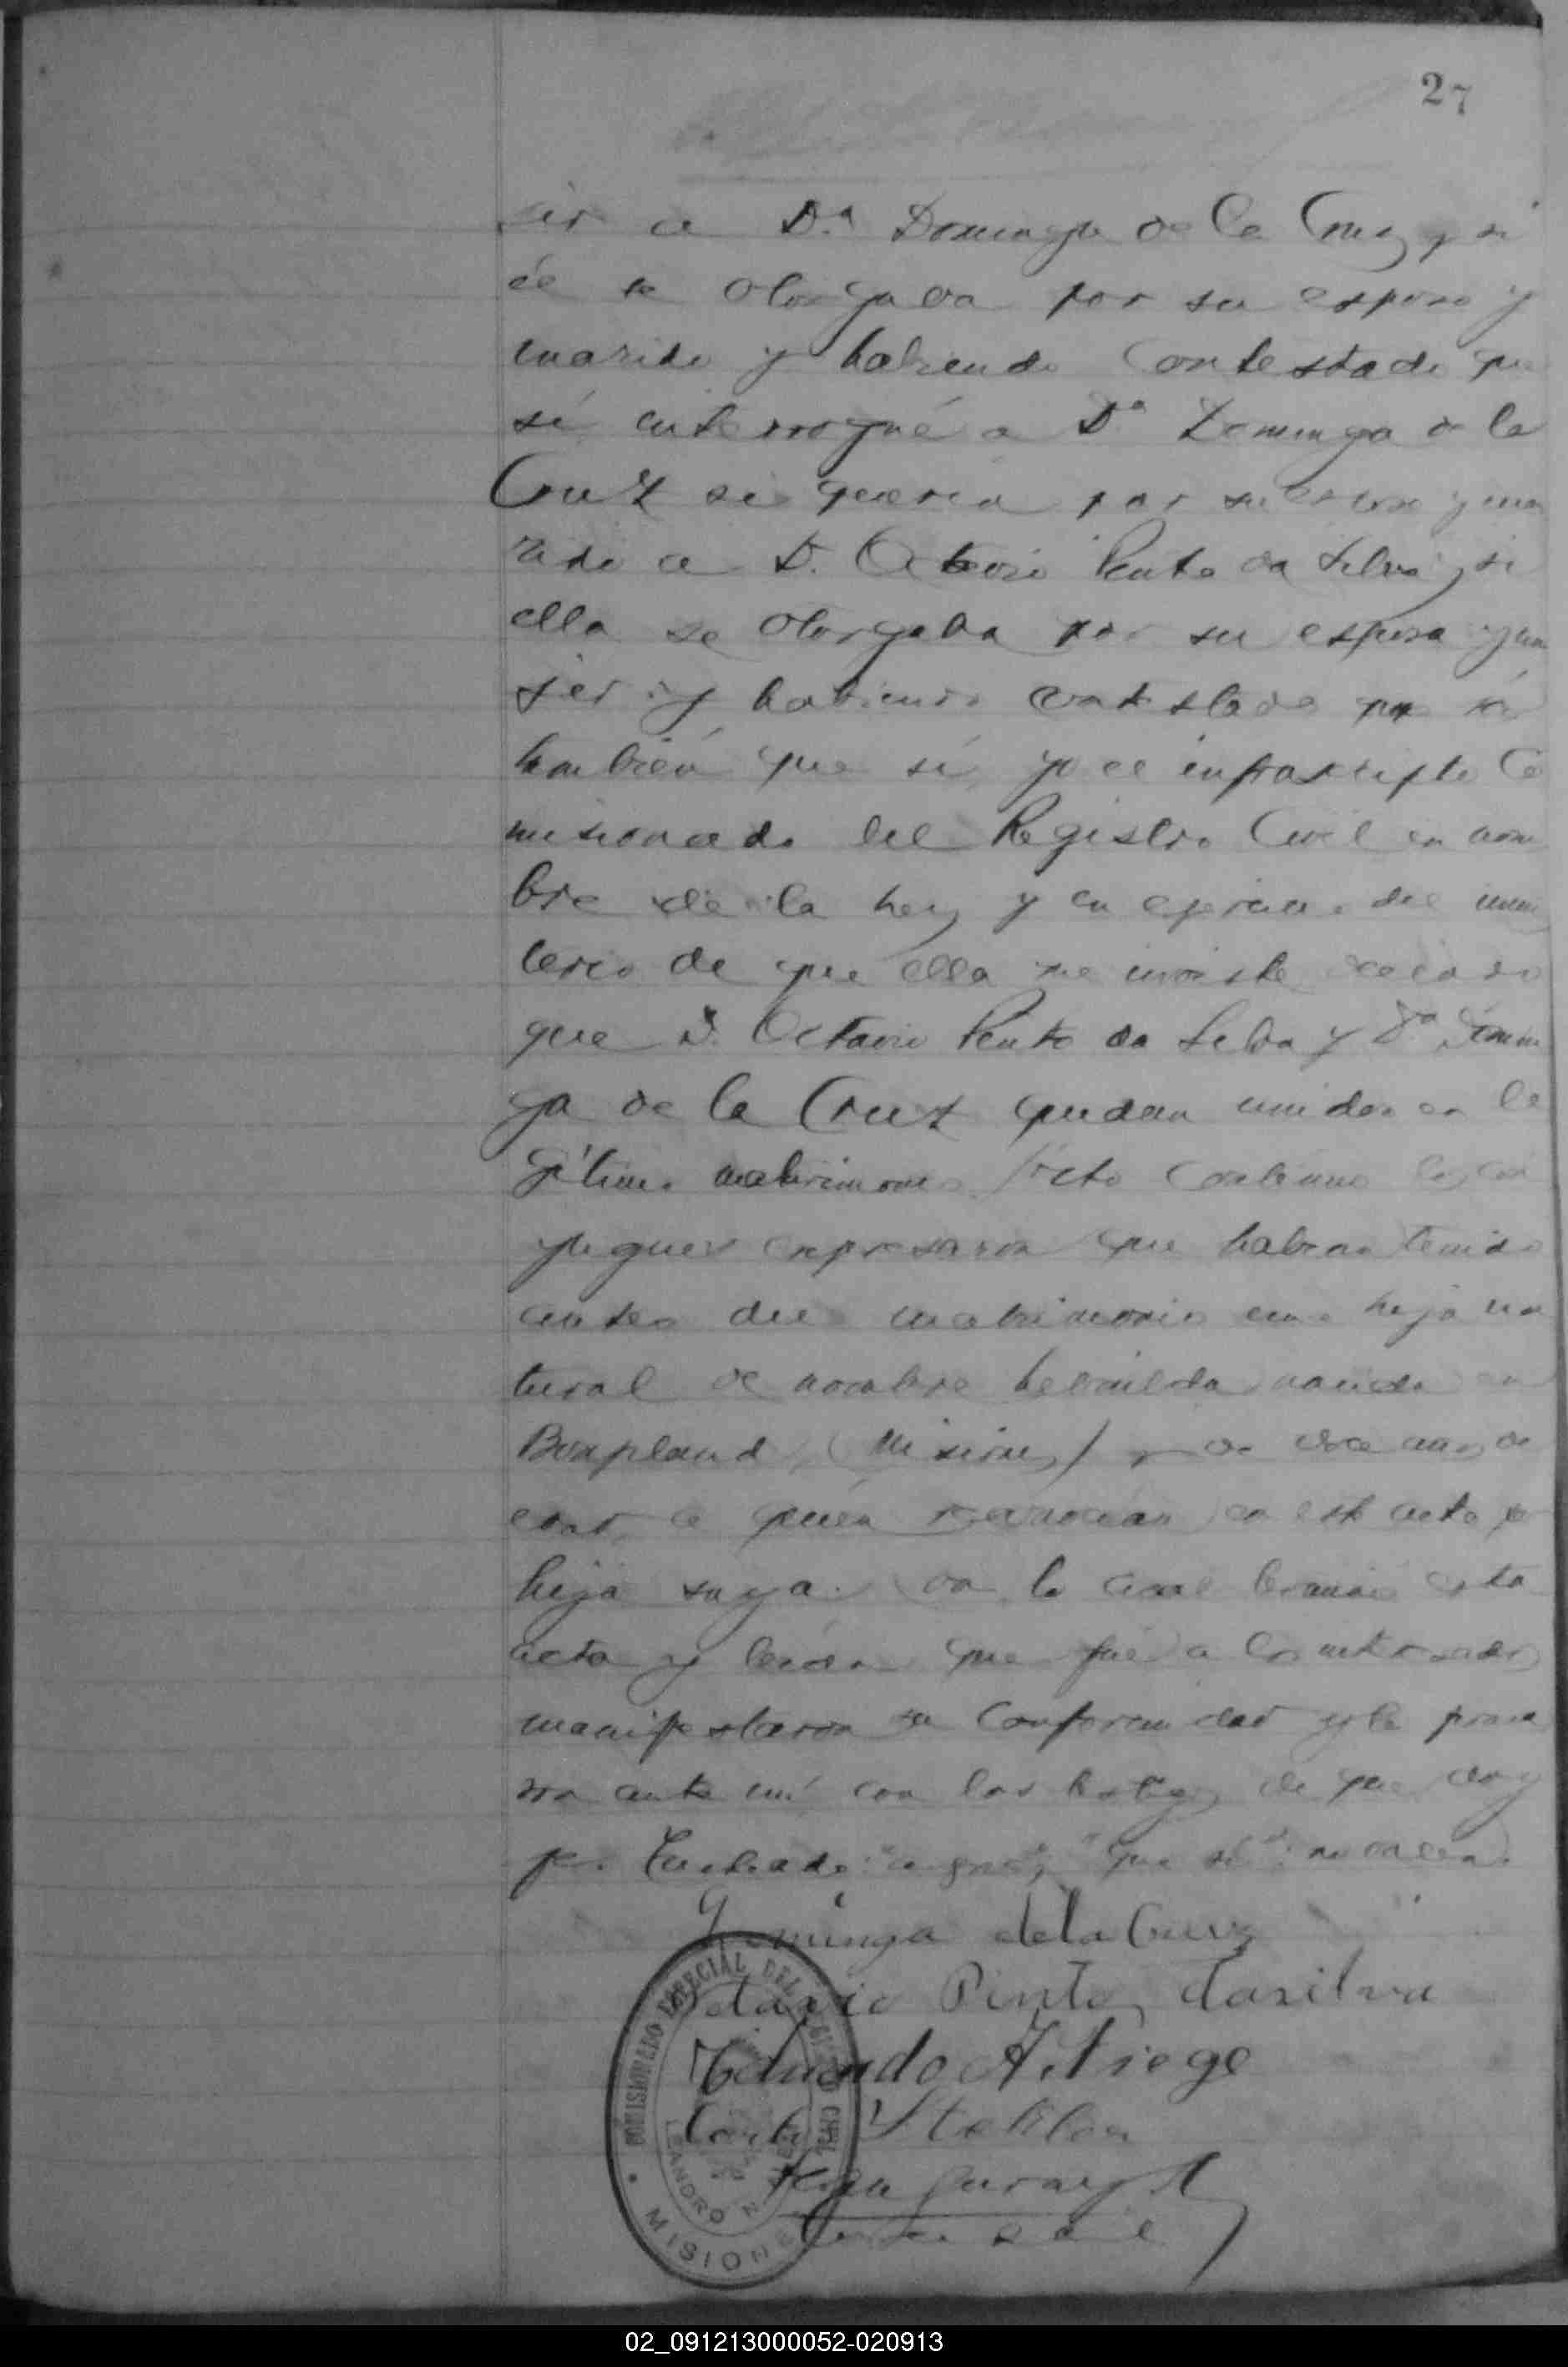 27
jer a Dª Dominga de la Cruz y si
él se otorgaba por su esposo y
marido y habiendo contestado que
sí interrogué a Dª Dominga de la
Cruz si quería por su esposo y ma
rido a D. Octavio Pinto da Silva y si
ella se otorgaba por su esposa y mu
jer y habiendo contestado que sí
también que sí, yo el infrascripto Co
misionado del Registro Civil en nom
bre de la Ley y en ejercicio del minis
terio de que ella me inviste declaro
que D. Octavio Pinto da Silva y Dª Domin
ga de la Cruz quedan unidos en le
gítimo matrimonio. Acto continuo los cón
yugues expresaron que habían tenido
antes del matrimonio una hija na
tural de nombre nacida en
Bonpland (Misiones) y de doce años de
edad a quién reconocían en este acto por
hija suya. Con lo cual terminó esta
acta y leída que fué a los interesados
manifestaron su conformidad y la firma
ron ante mí con los testigos de que doy
fe. Testado: "que sí": no valen.
Dominga dela Cruz
Octavio Pinto dasilva
Eduardo A. Friege
COMISIONADO ESPECIAL DEL REGISTRO CIVIL
LEANDRO N. ALEM
MISIONES
02_091213000052-020913